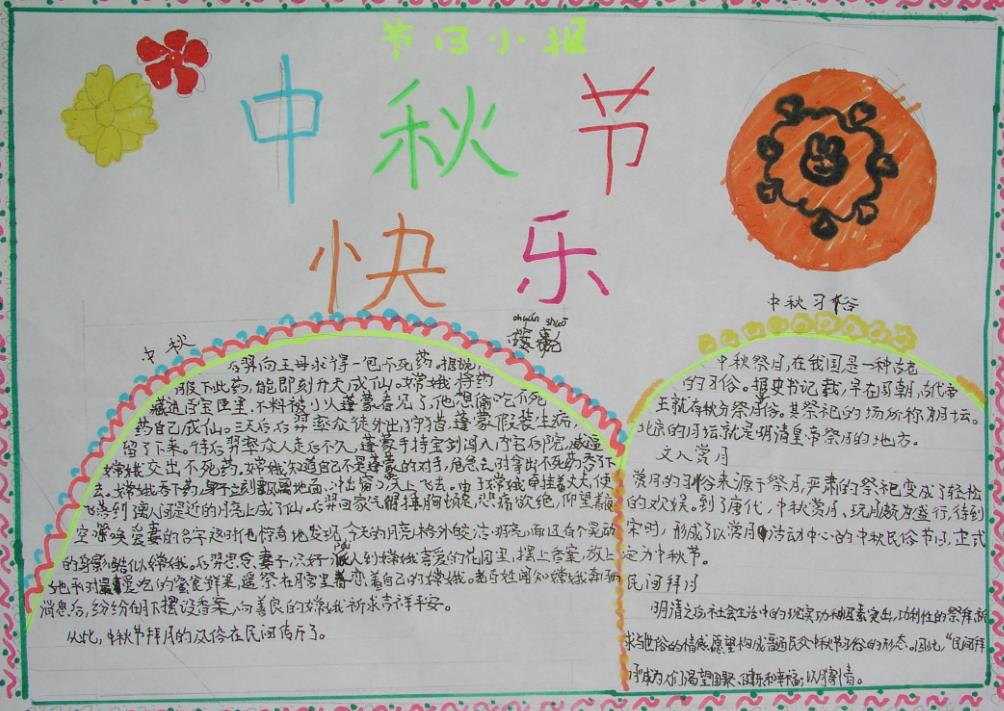 节日小报
中秋节
快乐
chuán shuō
中秋
后羿向王母求得一包不死药。据说，
服下此药，能即刻升天成仙。嫦娥将药
藏进百宝匣里，不料被小人蓬蒙看见了，他想偷吃不死
药自己成仙。三天后后羿率众徒外出狩猎，蓬蒙假装生病，
留了下来。待后羿率众人走后不久，蓬蒙手持宝剑闯入内宅后院，威逼
嫦娥交出不死药。嫦娥知道自己不是蓬蒙的对手，危急之时拿出不死药吞了下
去。嫦娥吞下药，身子立刻飘离地面、冲出窗口，向天上飞去。由于嫦娥牵挂着丈夫，便
飞落到离人间最近的月亮上成了仙。后羿回家气得捶胸顿足，悲痛欲绝，仰望着夜
空呼唤爱妻的名字，这时他惊奇地发现，今天的月亮格外皎洁明亮，而且有个晃动
的身影酷似嫦娥。后羿思念妻子，只好派人到嫦娥喜爱的花园里，摆上香案，放上
她平时最爱吃的蜜食鲜果，遥祭在月宫里眷恋着自己的嫦娥。老百姓闻知嫦娥奔月的
消息后，纷纷在月下摆设香案，向善良的嫦娥祈求吉祥平安。
从此，中秋节拜月的风俗在民间传开了。
中秋习俗
中秋祭月，在我国是一种古老
的习俗。据史书记载，早在周朝，古代帝
王就有秋分祭月俗。其祭祀的场所称为月坛。
北京的月坛就是明清皇帝祭月的地方。
文人赏月
赏月的习俗来源于祭月，严肃的祭祀变成了轻松
的欢娱。到了唐代，中秋赏月、玩月颇为盛行，待到
宋时，形成了以赏月活动为中心的中秋民俗节日，正式
定为中秋节。
民间拜月
明清之后，社会生活中的现实功利因素突出，功利性的祭拜、祈
求与世俗的情感、愿望构成普通民众中秋节习俗的形态。因此，“民间拜
月”成为人们渴望团聚、康乐和幸福，以月寄情。